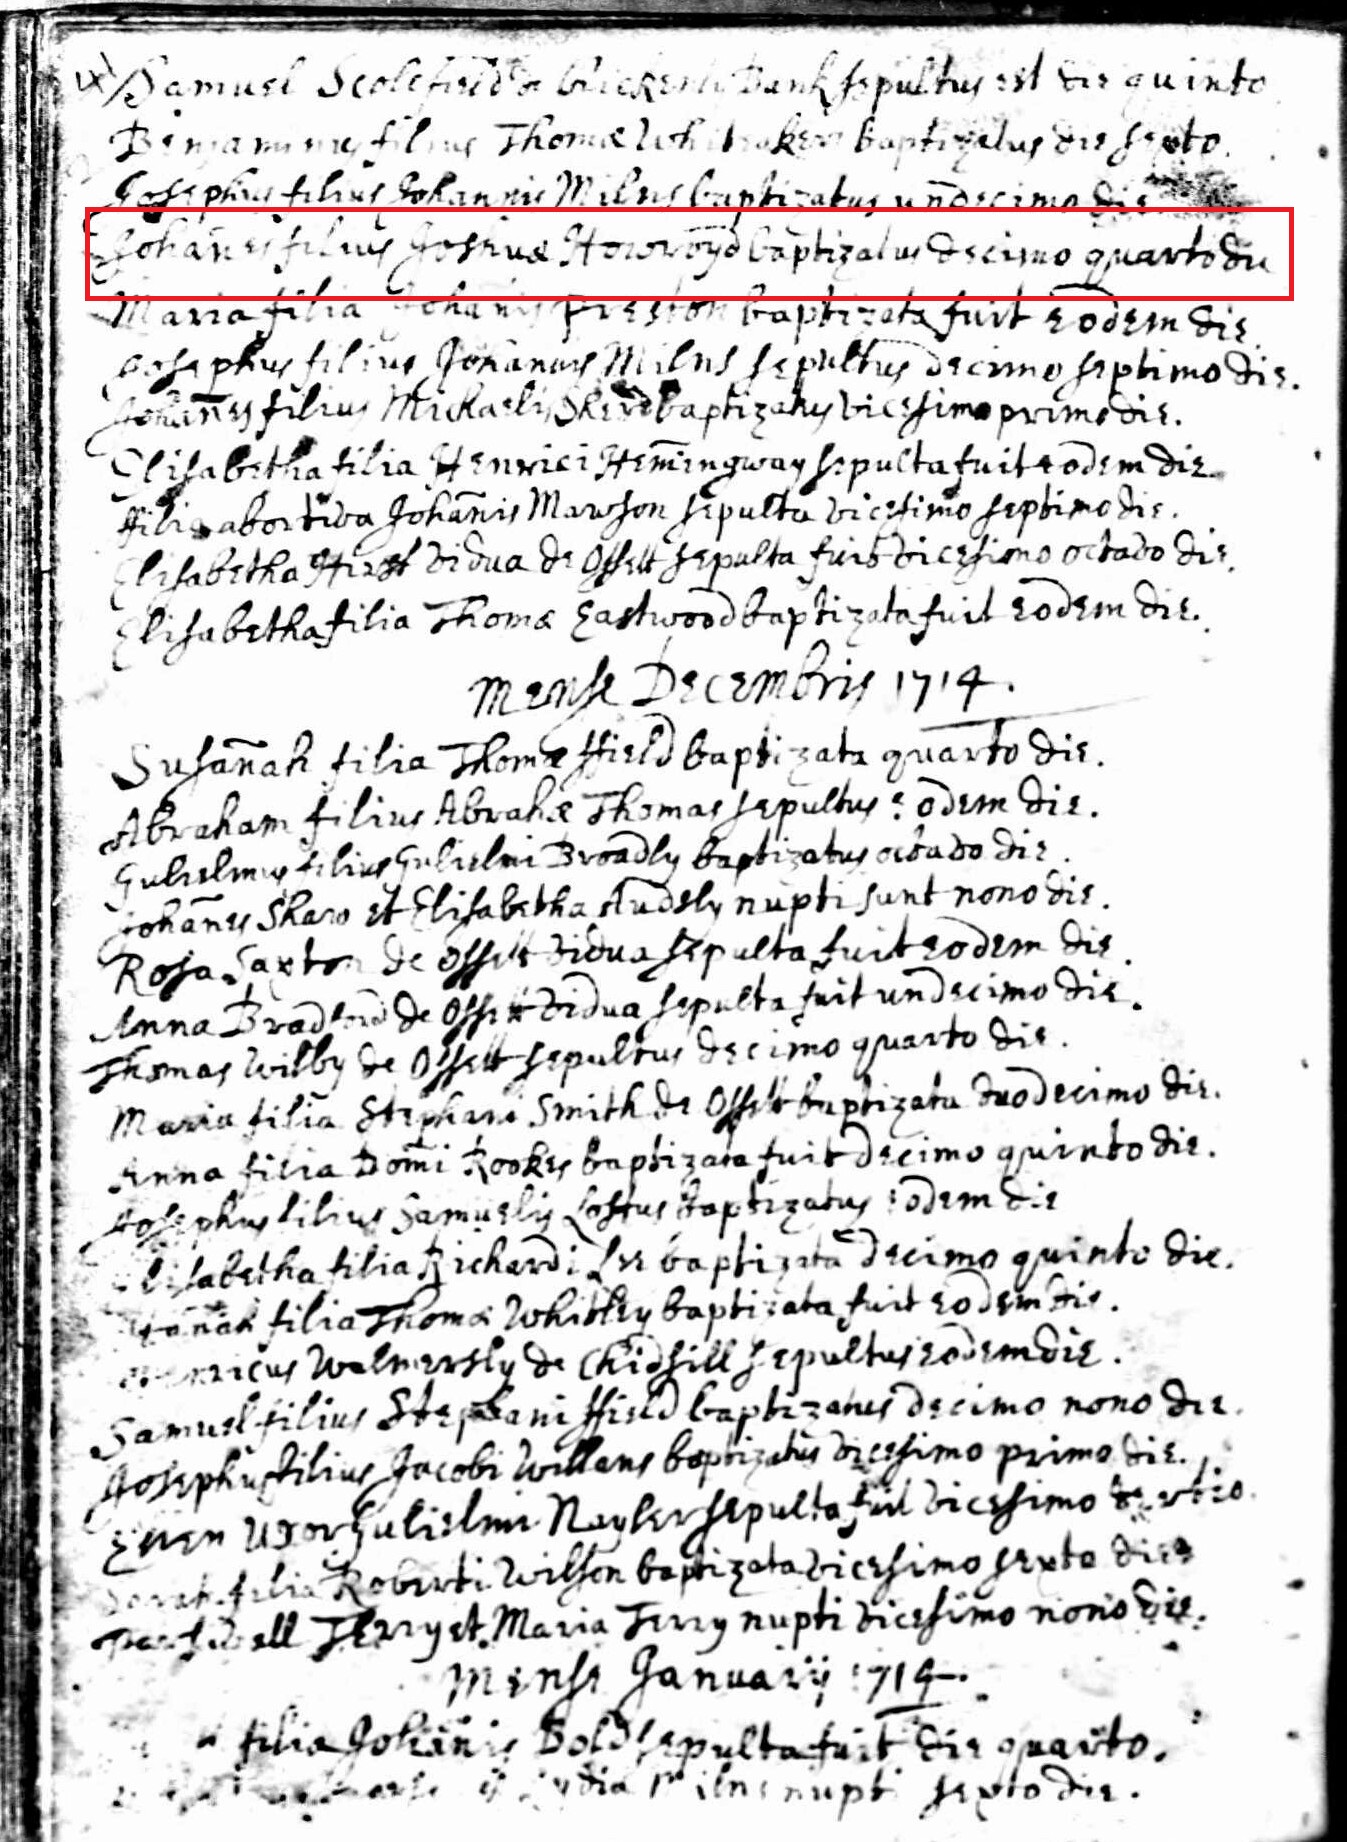 Samuel Scolefield de Bank sepultus est die quinto
filius Thomæ baptizatus die sexto.
Josephus filius Johannis Milns baptizatus undecimo die
Johañes filius Joshuæ Howroyd baptizatus decimo quarto die
Maria filia Johañis Preston baptizata fuit eodem die
Josephus filius Johannis Milns sepultus decimo septimo die.
Johañes filius Michaelis baptizatus vicesimo primo die.
Elisabetha filia Henrici Hem̃ingway sepulta fuit eodem die
ffilia abortiva Johañis Mawson sepulta vicesimo septimo die.
Elisabetha Hirst vidua de Ossett sepulta fuit vicesimo octavo die.
Elisabetha filia Thomæ Eastwood baptizata fuit eodem die.
Mense Decembris 1714.
Susañah filia Thomæ ffield baptizata quarto die.
Abraham filius Abrahæ Thomas sepultus eodem die.
Gulielmus filius Gulielmi Broadly baptizatus octavo die.
Johañes Shaw et Elisabetha Audsly nupti sunt nono die.
Rosa Saxton de Ossett vidua sepulta fuit eodem die.
Anna Bradford de Ossett vidua sepulta fuit undecimo die.
Thomas Wilby de Ossett sepultus decimo quarto die.
Maria filia Stephani Smith de Ossett baptizata duodecimo die.
Anna filia Dom̃i Rookes baptizata fuit decimo quinto die.
Josephus filius Samuelis Loftus baptizatus eodem die
Elisabetha filia Richardi Lee baptizata decimo quinto die.
filia Thomæ Whitley baptizata fuit eodem die.
Henricus Walmersly de Chidsill sepultus eodem die.
Samuel filius Stephani ffield baptizatus decimo nono die.
Josephus filius Jacobi Willans baptizatus vicesimo primo die.
Ellen Uxor Gulielmi Nayler sepulta fuit vicesimo tertio.
Sarah filia Roberti Wilson baptizata vicesimo sexto die
Terry et Maria Terry nupti vicesimo nono die.
Mense Januarij 1714.
filia Johañis Bold sepulta fuit die quarto.
Lydia Milns nupti sexto die.